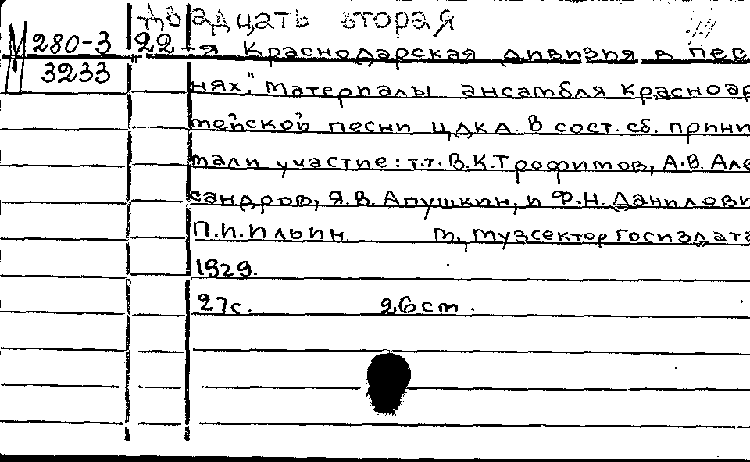 двадцать вторая
М 280-3 22-я Краснодарская дивизия в пес
3233
нях". Материалы ансамбля красноар
мейской песни ЦДКА. В сост. сб. прини
мали участие: т.т. В.К.Трофимов, А.В. Але
сандров, Я.В. Апушкин, и Ф.Н. Данилови
П.И.Ильин М, Музсектор Госиздата
1929.
27с. 26 см.